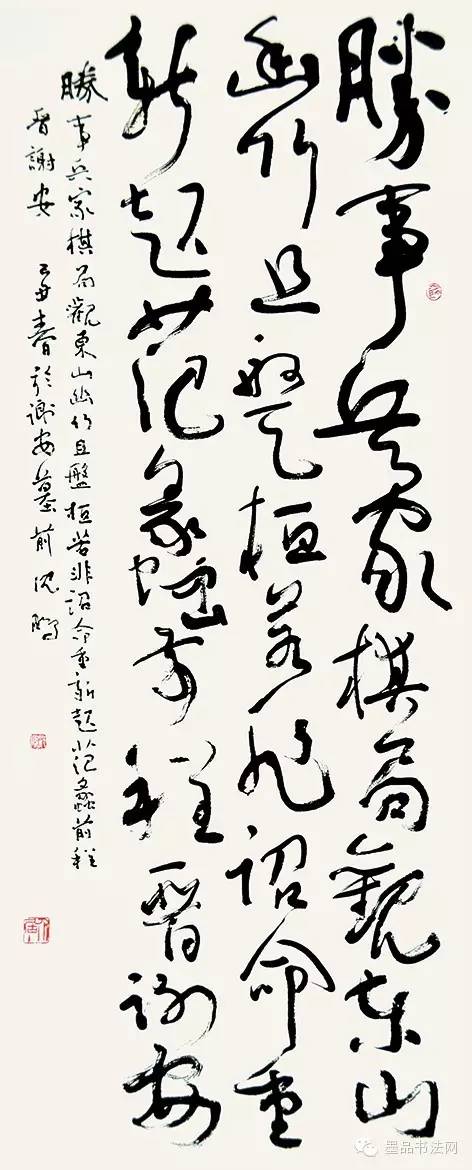 勝事兵家棋局觀東山
幽竹且盤桓若非詔命重
新起范蠡前程晉謝安
勝事兵家棋局觀東山幽竹且盤桓若非詔命重新起范蠡前程
晉謝安 春於謝安墓前沈鵬
墨品书法网